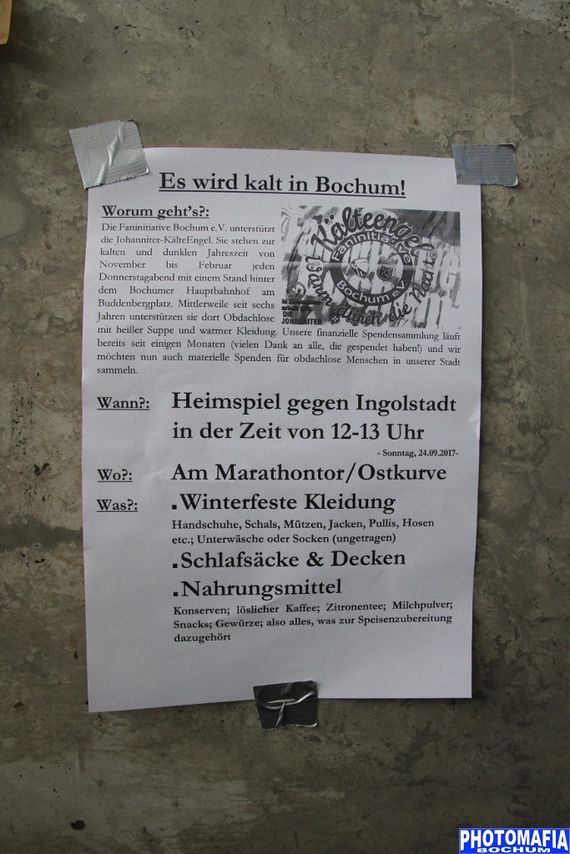 Es wird kalt in Bochum!
Worum geht's?:
Die Faninitiative Bochum e.V. unterstützt
die Johanniter-KälteEngel. Sie stehen zur
kalten und dunklen Jahreszeit von
November bis Februar jeden
Donnerstagabend mit einem Stand hinter
dem Bochumer Hauptbahnhof am
Buddenbergplatz. Mittlerweile seit sechs
Jahren unterstützen sie dort Obdachlose
mit heißer Suppe und warmer Kleidung. Unsere finanzielle Spendensammlung läuft
bereits seit einigen Monaten (vielen Dank an alle, die gespendet haben!) und wir
möchten nun auch materielle Spenden für obdachlose Menschen in unserer Stadt
sammeln.
Kälteengel
Faninitiative
Bochum e.V.
warm durch die Nacht
JOHANNITER
Wann?: Heimspiel gegen Ingolstadt
in der Zeit von 12-13 Uhr
- Sonntag, 24.09.2017-
Wo?: Am Marathontor/Ostkurve
Was?: .Winterfeste Kleidung
Handschuhe, Schals, Mützen, Jacken, Pullis, Hosen
etc.; Unterwäsche oder Socken (ungetragen)
.Schlafsäcke & Decken
.Nahrungsmittel
Konserven; löslicher Kaffee; Zitronentee; Milchpulver;
Snacks; Gewürze; also alles, was zur Speisenzubereitung
dazugehört
PHOTOMAFIA
BOCHUM